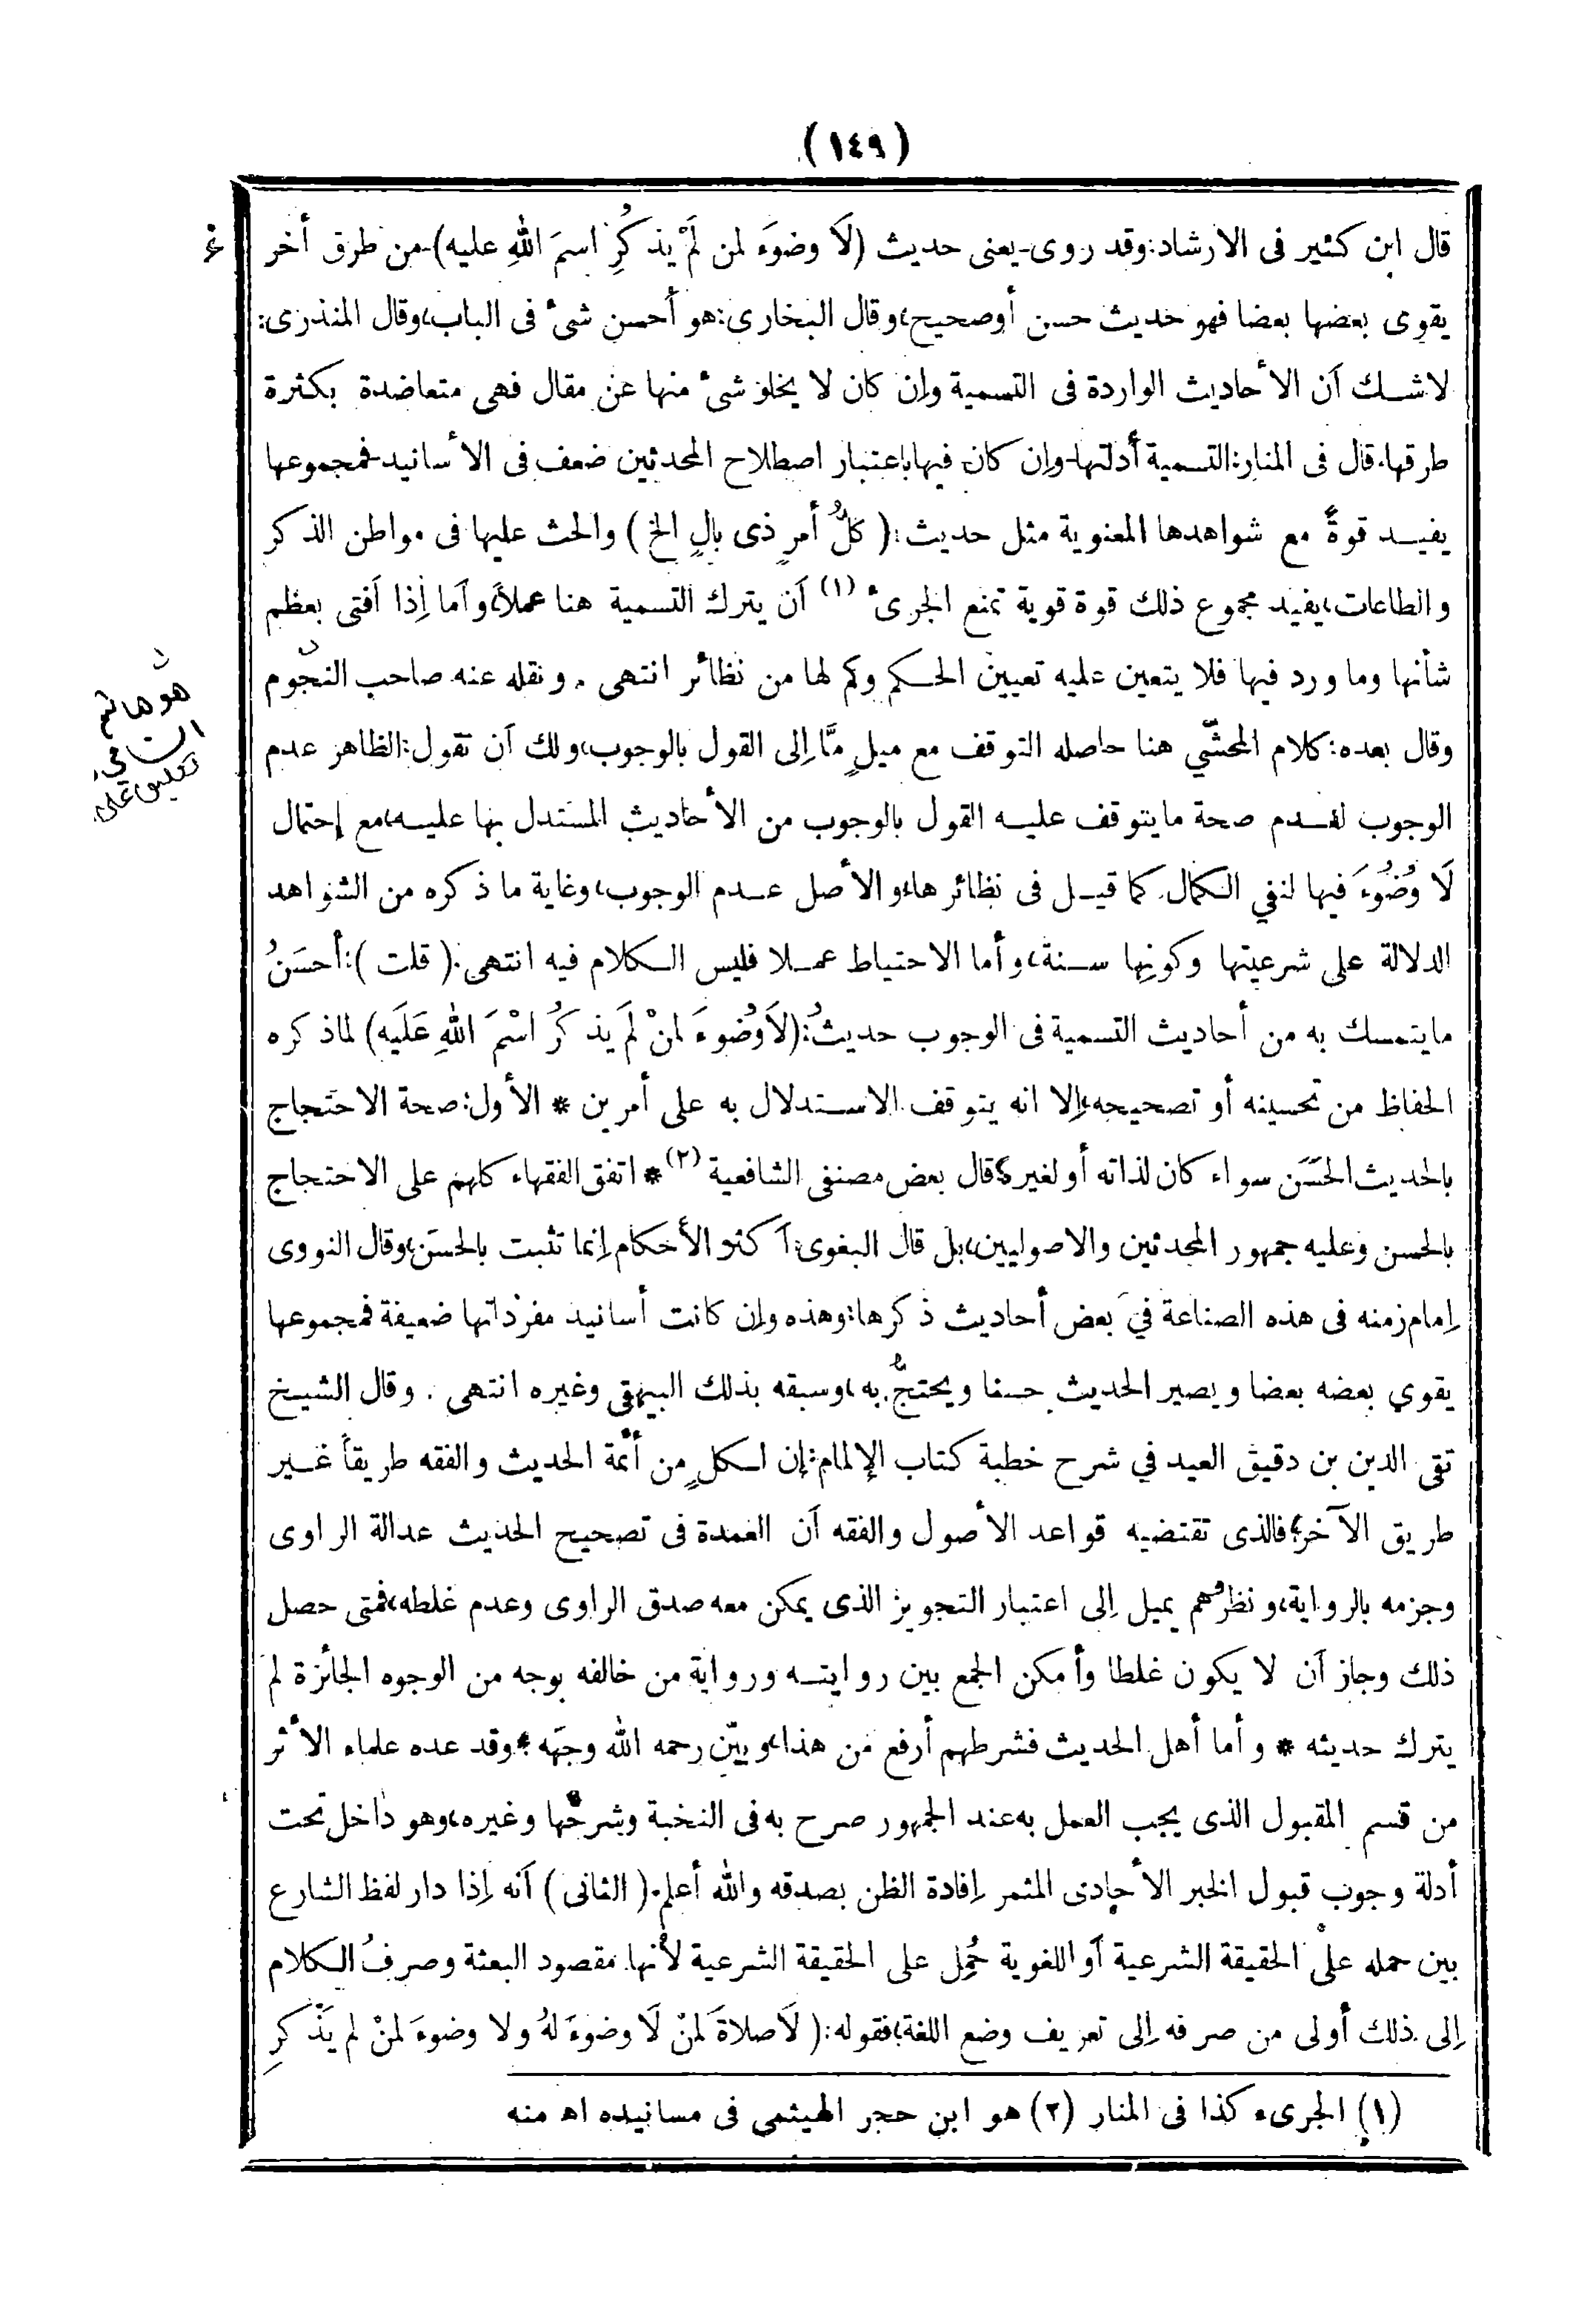 (١٤٩)
قال ابن كثير فى الارشاد: وقد روى-يعنى حديث (لَا وضوَء لمن لَمْ يذكُرِ اسمَ اللهِ عليه)-من طرق أخر
يقوى بعضها بعضا فهو حديث حسن أوصحيح، وقال البخارى: هو أحسن شىء فى الباب، وقال المنذرى:
لاشك أن الأحاديث الواردة فى التسمية وإن كان لا يخلو شىء منها عن مقال فهى متعاضدة بكثرة
طرقها. قال فى المنار: التسمية أدلتها-وإن كان فيها باعتبار اصطلاح المحدثين ضعف فى الأسانيد-فمجموعها
يفيد قوةً مع شواهدها المعنوية مثل حديث: (كلُّ أمرٍ ذى بالٍ الخ) والحث عليها فى مواطن الذكر
والطاعات، يفيد مجموع ذلك قوة قوية تمنع الجرىء (١) أن يترك التسمية هنا عملاً، وأما إذا أفتى بعظم
شأنها وما ورد فيها فلا يتعين عليه تعيين الحكم وكم لها من نظائر انتهى . ونقله عنه صاحب النجوم
وقال بعده: كلام المحشّي هنا حاصله التوقف مع ميلٍ مَّا إلى القول بالوجوب، ولك أن تقول: الظاهر عدم
الوجوب لعدم صحة مايتوقف عليه القول بالوجوب من الأحاديث المستدل بها عليه، مع إحتمال
لَا وُضُوَء فيها لنفي الكمال كما قيل فى نظائرها، والأصل عدم الوجوب، وغاية ما ذكره من الشواهد
الدلالة على شرعيتها وكونها سنة، وأما الاحتياط عملا فليس الكلام فيه انتهى. (قلت): أحسَنُ
مايتمسك به من أحاديث التسمية فى الوجوب حديثُ: (لَاوُضوءَ لمنْ لَم يذكُرُ اسْمَ اللهِ عَلَيه) لماذكره
الحفاظ من تحسينه أو تصحيحه، إلا انه يتوقف الاستدلال به على أمرين * الأول: صحة الاحتجاج
بالحديث الحَسَن سواء كان لذاته أو لغيره، قال بعض مصنفى الشافعية (٢) * اتفق الفقهاء كلهم على الاحتجاج
بالحسن وعليه جمهور المحدثين والاصوليين، بل قال البغوى: أكثر الأحكام إنما تثبت بالحسَن، وقال النووى
إمام زمنه فى هذه الصناعة في بعض أحاديث ذكرها: وهذه وإن كانت أسانيد مفرداتها ضعيفة فمجموعها
يقوي بعضه بعضا ويصير الحديث حسنا ويحتجُّ به، وسبقه بذلك البيهقي وغيره انتهى . وقال الشيخ
تقى الدين بن دقيق العيد في شرح خطبة كتاب الإلمام: إن لكلٍ من أئمة الحديث والفقه طريقاً غير
طريق الآخر، فالذى تقتضيه قواعد الأصول والفقه أن العمدة فى تصحيح الحديث عدالة الراوى
وجزمه بالرواية، ونظرُهم يميل إلى اعتبار التجويز الذى يمكن معه صدق الراوى وعدم غلطه، فمتى حصل
ذلك وجاز أن لا يكون غلطا وأمكن الجمع بين روايته ورواية من خالفه بوجه من الوجوه الجائزة لم
يترك حديثه * وأما أهل الحديث فشرطهم أرفع من هذا، وبيّن رحمه الله وجهَه، وقد عده علماء الأثر
من قسم المقبول الذى يجب العمل به عند الجمهور صرح به فى النخبة وشرحها وغيره، وهو داخل تحت
أدلة وجوب قبول الخبر الأحادى المثمر إفادة الظن بصدقه والله أعلم. (الثانى) أنه إذا دار لفظ الشارع
بين حمله على الحقيقة الشرعية أو اللغوية حُمِل على الحقيقة الشرعية لأنها مقصود البعثة وصرفُ الكلام
إلى ذلك أولى من صرفه إلى تعريف وضع اللغة، فقوله: (لَاصلاةَ لمنْ لَا وضوءَ لهُ ولا وضوءَ لمنْ لم يَذْكرِ
(١) الجرىء كذا فى المنار (٢) هو ابن حجر الهيثمى فى مسانيده اه منه
ن
هو هاشم
الشامي
تعليق على